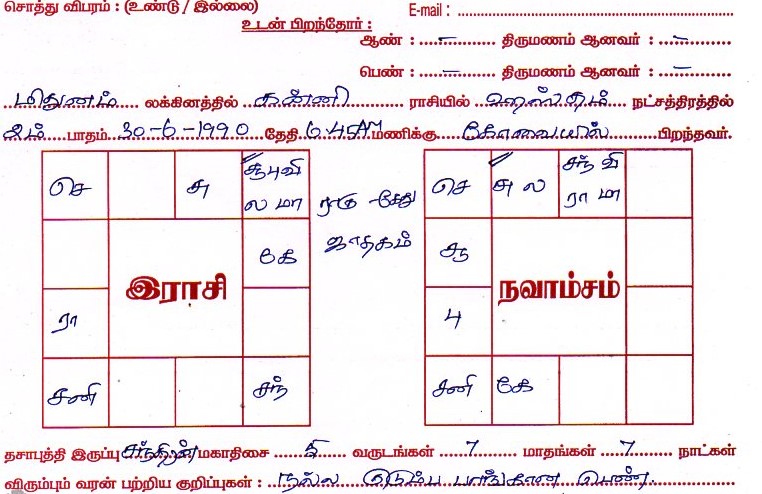 சொத்து விபரம் : (உண்டு / இல்லை)
E-mail :
உடன் பிறந்தோர் :
ஆண் : ..........–........ திருமணம் ஆனவர் : ....–....
பெண் : ..........–........ திருமணம் ஆனவர் : ....–....
மிதுனம் லக்கினத்தில் கன்னி ராசியில் ஹஸ்தம் நட்சத்திரத்தில்
2ம் பாதம் 30-6-1990 தேதி 6.45AM மணிக்கு கோவையில் பிறந்தவர்.
செ சு சூ பு வி
ல மா
கே
இராசி
ரா
சனி சந்
ராகு கேது
ஜாதகம்
செ சு ல சந் வி
ரா மா
சூ
நவாம்சம்
பு
சனி கே
தசாபுத்தி இருப்பு சந்திரன் மகாதிசை 5 வருடங்கள் 7 மாதங்கள் 7 நாட்கள்
விரும்பும் வரன் பற்றிய குறிப்புகள் : நல்ல குடும்ப பாங்கான பெண்.